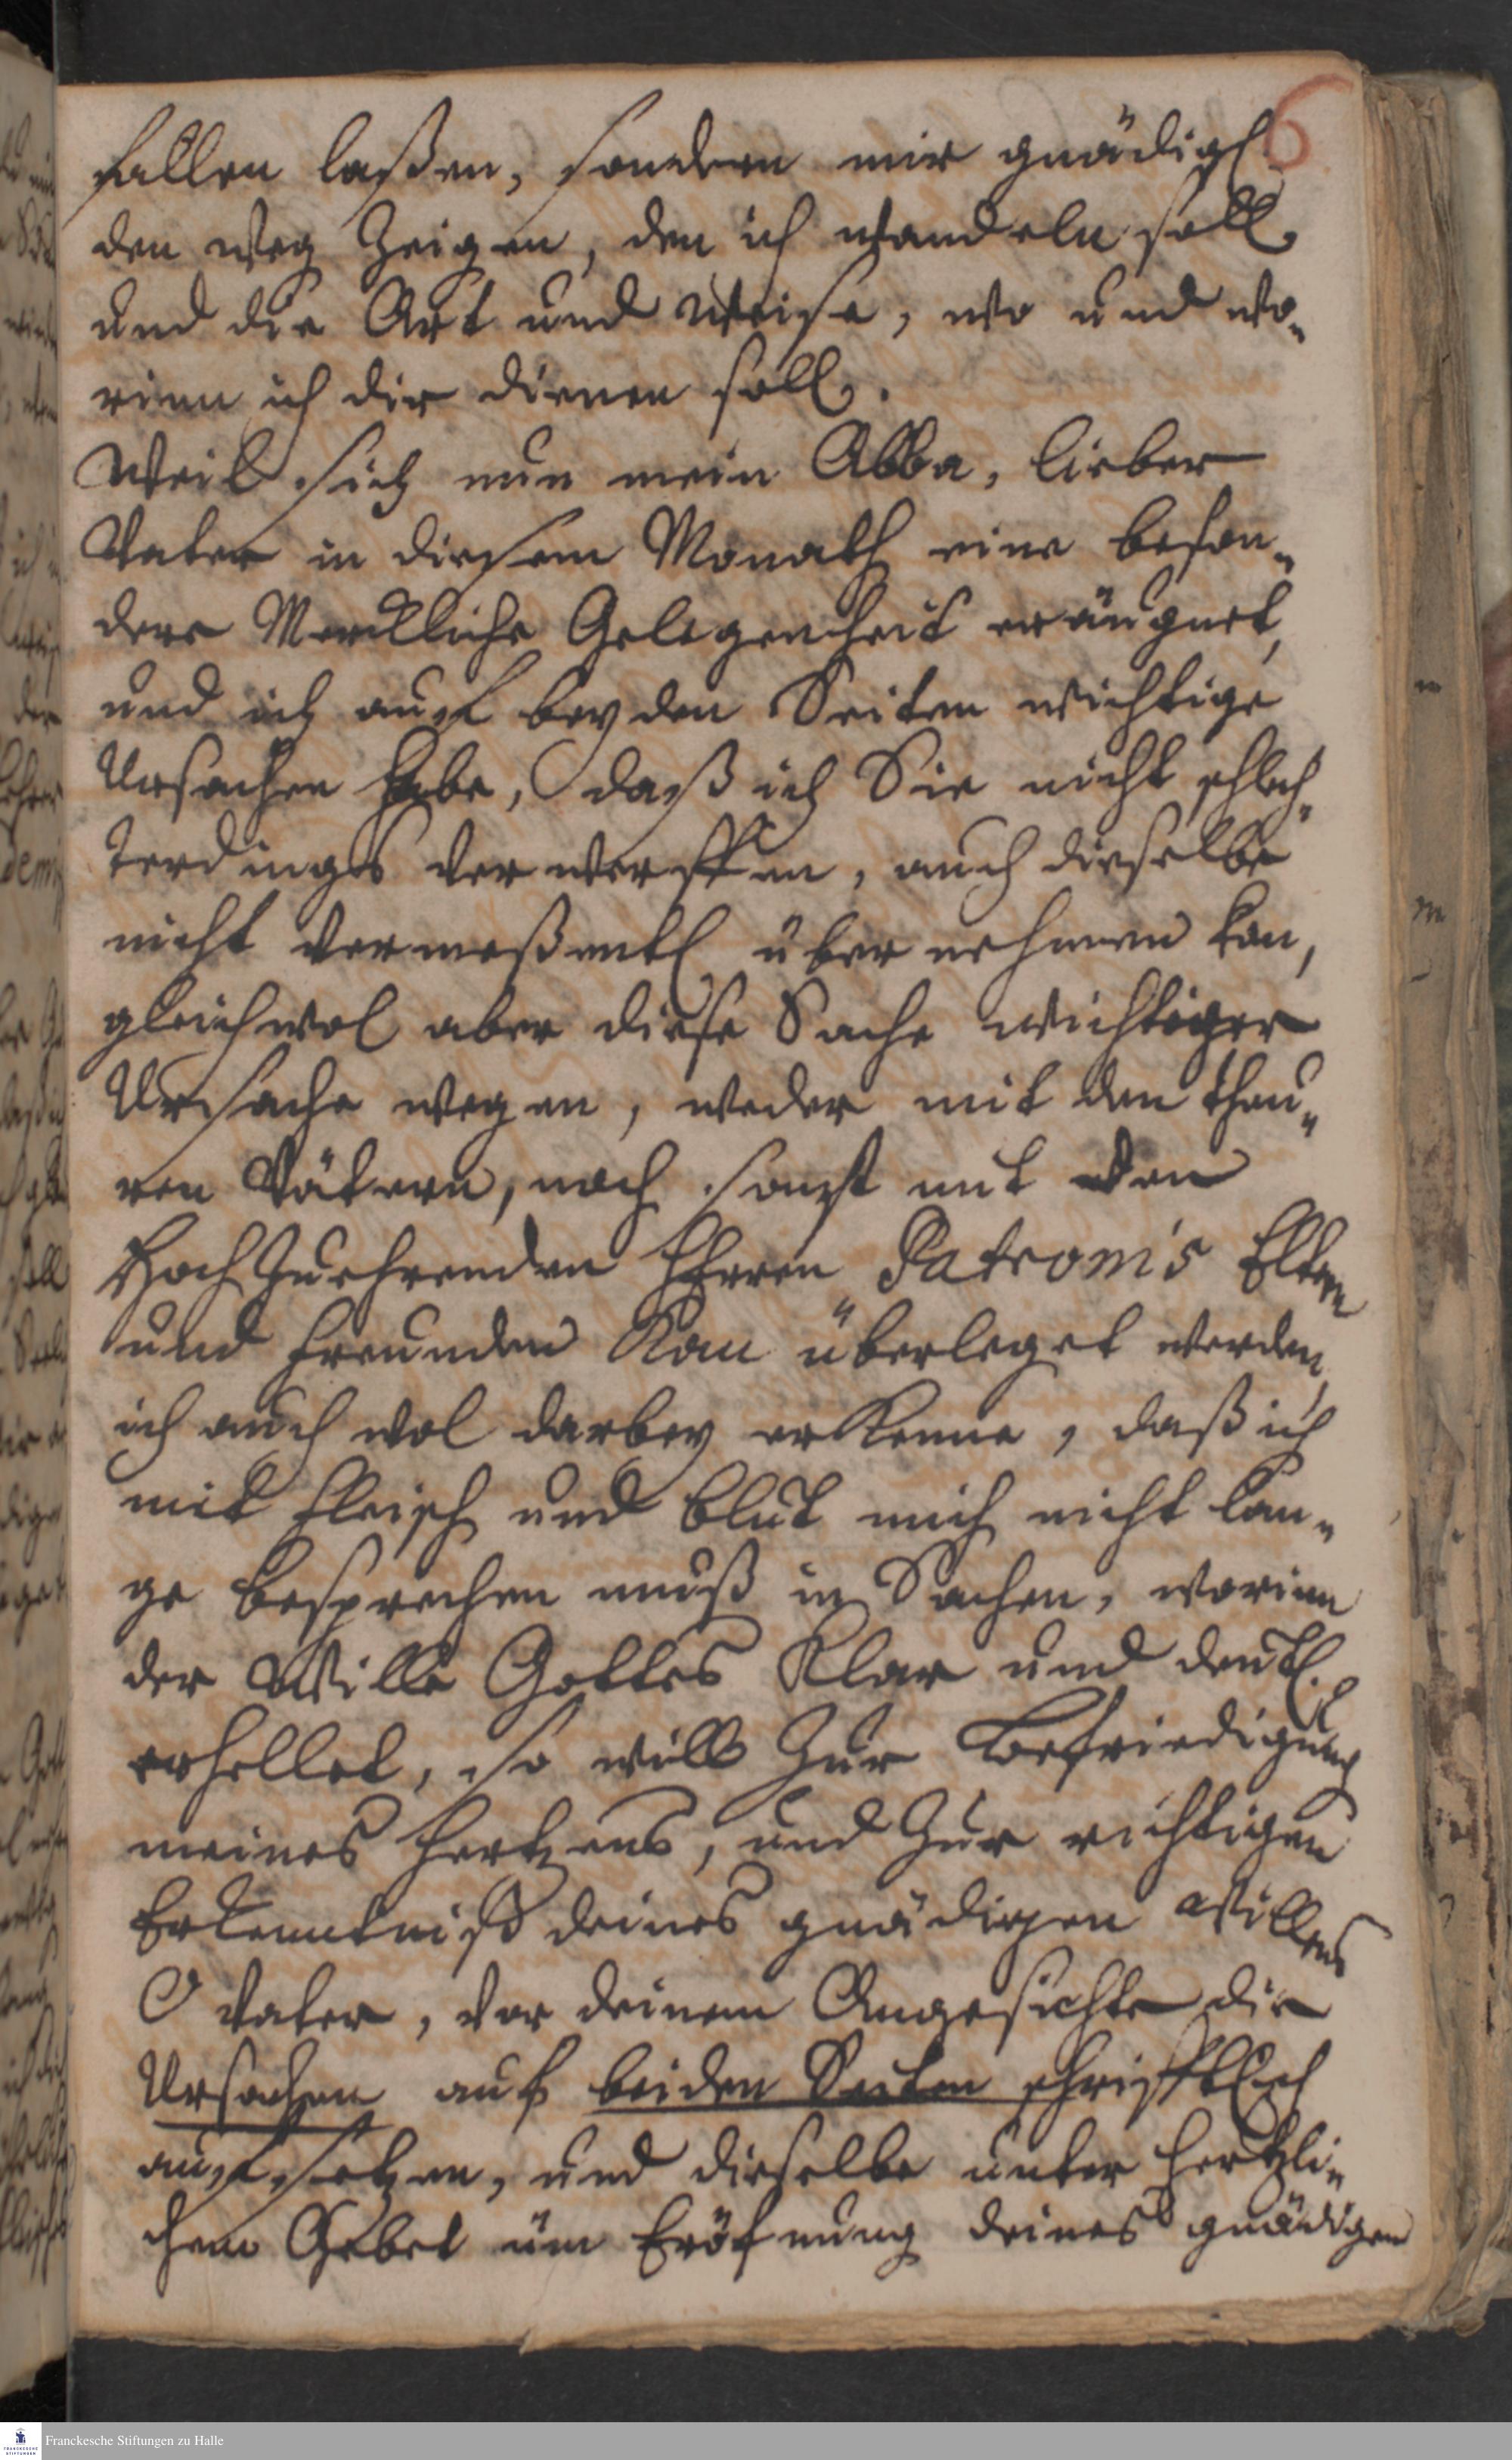 6
fallen laßen, sondern mir gnädigl.
den weg Zeigen, den ich wandeln soll,
und die Art und weise, wo und wo-
rinn ich dir dienen soll.
Weil sich nun mein Abba, lieber
Vater in diesem Monath eine beson-
dere Merckliche Gelegenheit eräugnet,
und ich auf beyden Seiten wichtige
Ursachen habe, daß ich Sie nicht schlech-
terdings verwerffen, auch dieselbe
nicht vermeßentl. übernehmen kan,
gleichwol aber diese Sache wichtiger
Ursache wegen, weder mit den theu-
ren Vätern, noch sonst mit den
HochZuehrenden Herren Patronis Eltern
und freunden Kan überleget werden,
ich auch wol darbey erKenne, daß ich
mit fleisch und blut mich nicht lan-
ge besprechen muß in Sachen, worinn
der Wille Gottes Klar und deutl.
erhellet, so will Zur Befriedigung
meines hertzens, und Zur richtigen
Erkenntniß deines gnädigen willens
O Vater, vor deinem Angesichte die
Ursachen auf beiden Seiten schrifftlich
aufsetzen, und dieselbe unter hertzli-
chem Gebet üm Eröfnung deines gnädigen
Franckesche Stiftungen zu Halle